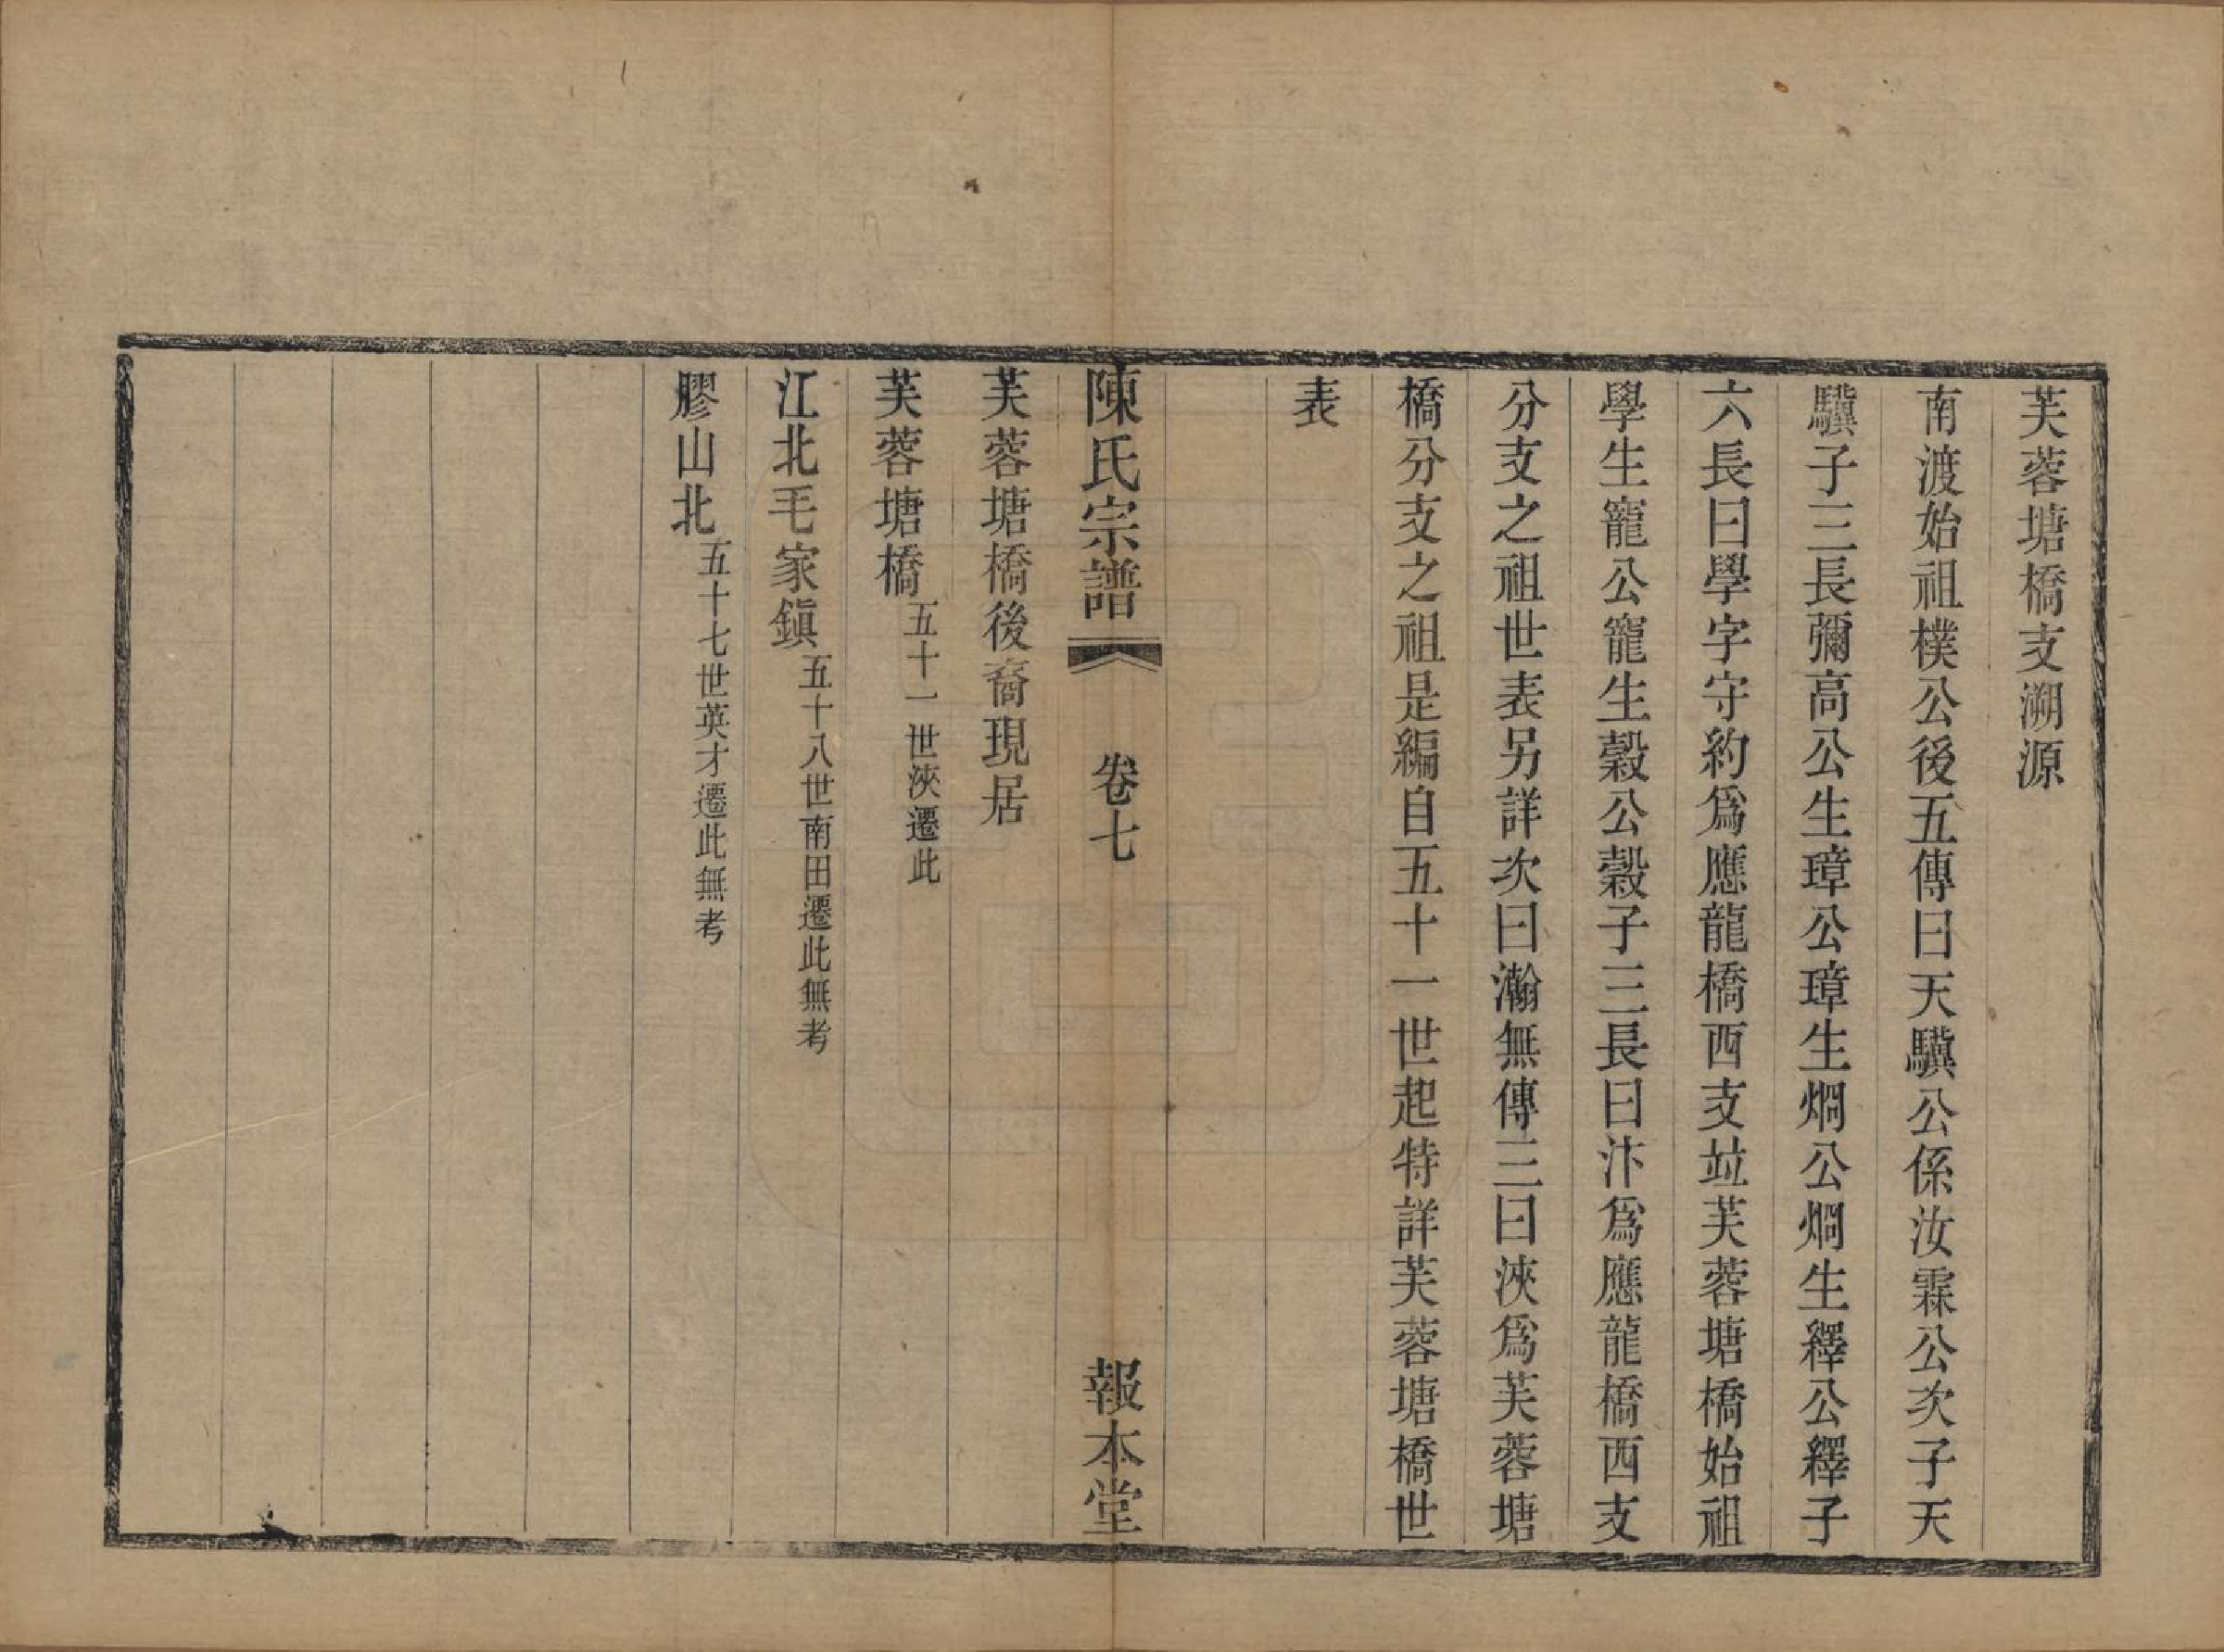 芙蓉塘橋支溯源
南渡始祖樸公後五傳曰天驥公係汝霖公次子天
驥子三長彌高公生璋公璋生烱公烱生繹公繹子
六長曰學字守約爲應龍橋西支竝芙蓉塘橋始祖
學生寵公寵生穀公穀子三長曰汴爲應龍橋西支
分支之祖世表另詳次曰瀚無傳三曰浹爲芙蓉塘
橋分支之祖是編自五十一世起特詳芙蓉塘橋世
表
陳氏宗譜 卷七 報本堂
芙蓉塘橋後裔現居
芙蓉塘橋五十一世浹遷此
江北毛家鎭五十八世南田遷此無考
膠山北五十七世英才遷此無考